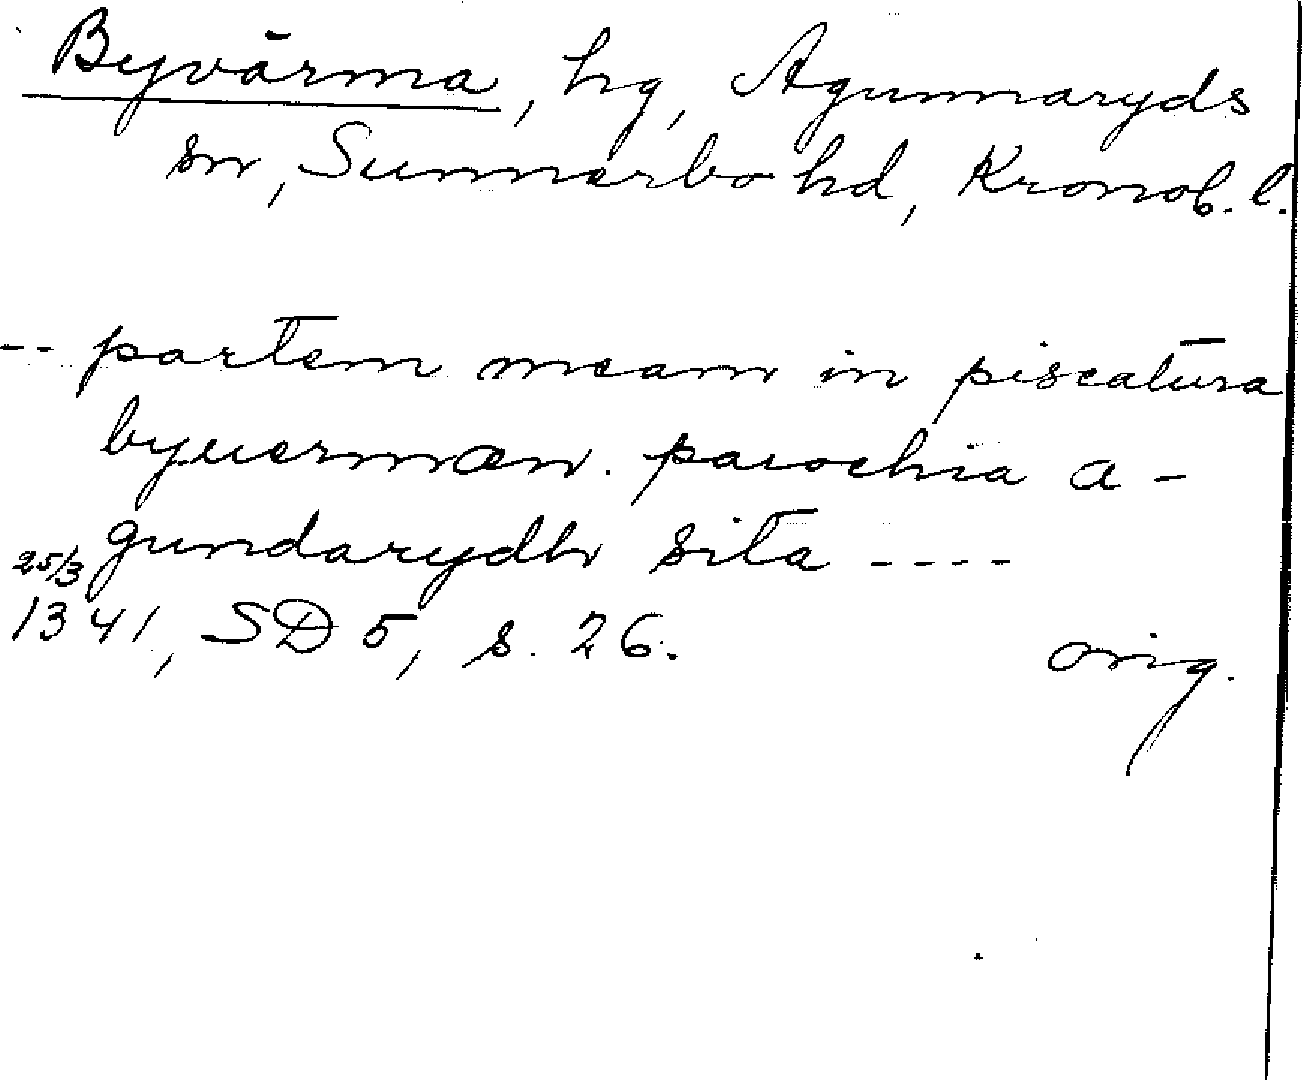 Byvärma, hg, Agunnaryds
sn, Sunnerbo hd, Kronob. l.
-- partem meam in piscatura
byuermæn. parochia a-
gundarydh sita ----
25/3
1341, SD 5, s. 26.
orig.